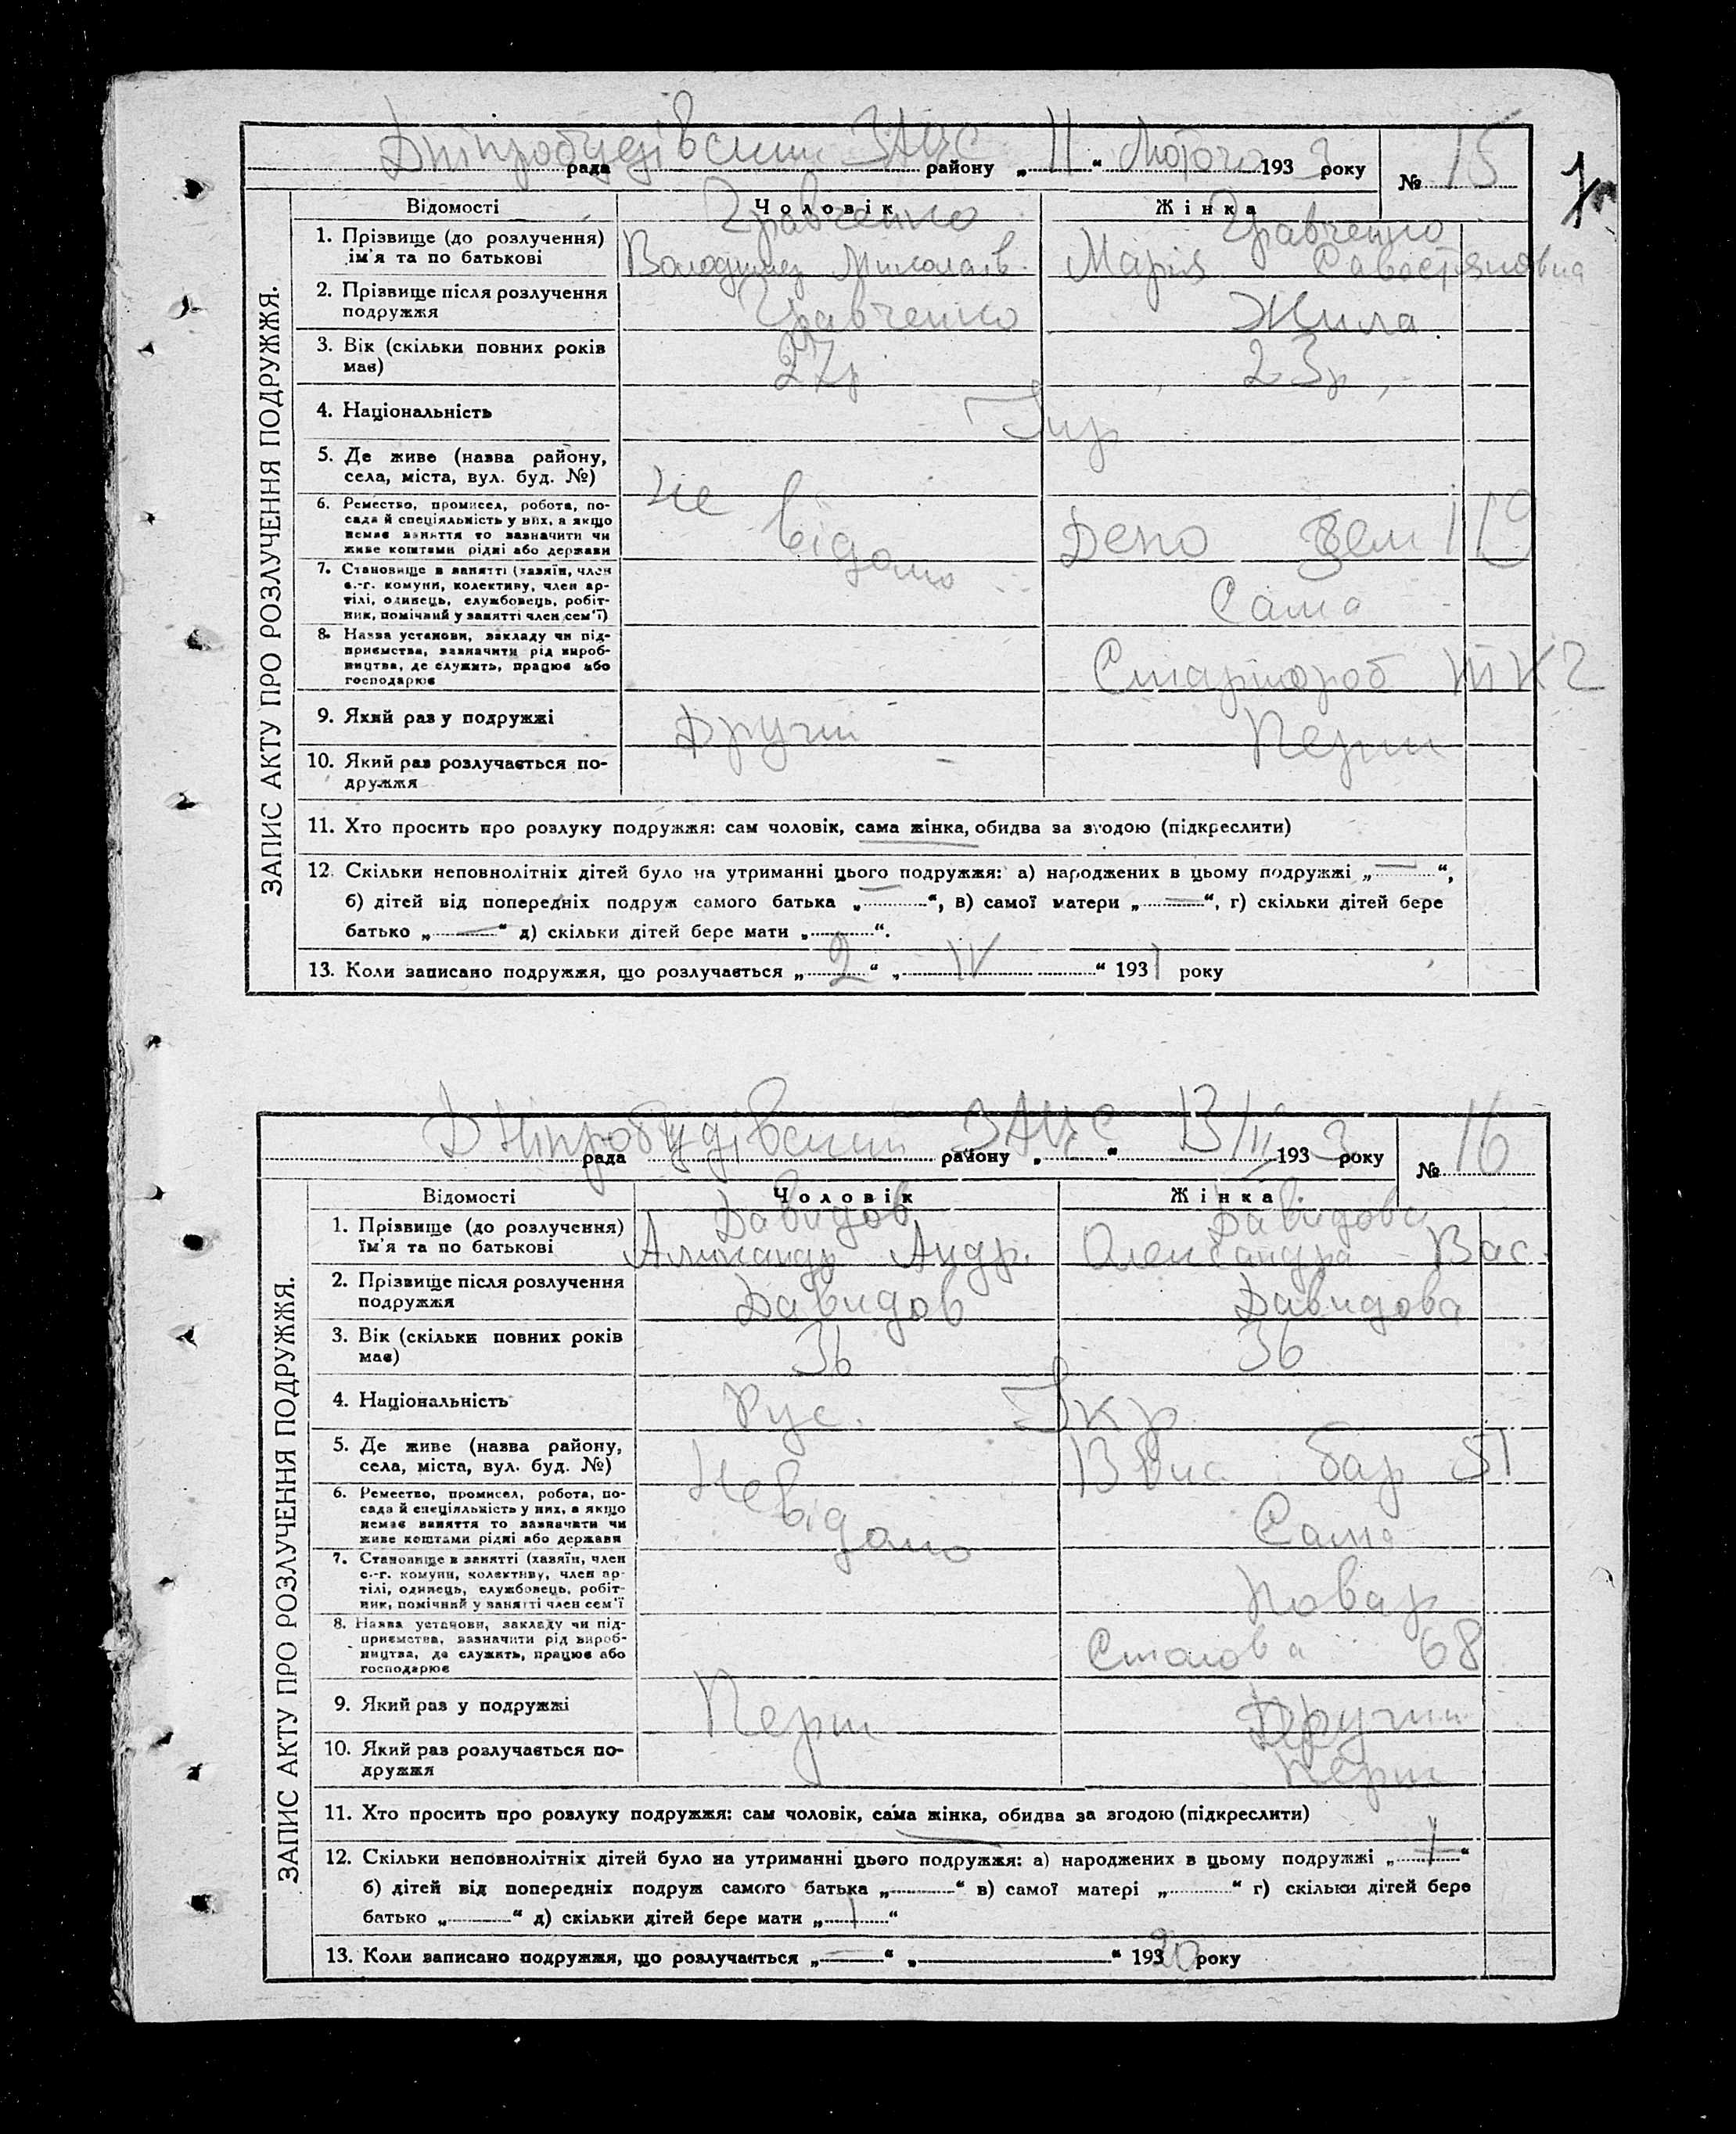 Дніпробудівський ЗАЦС 11 Лютого 3 15
рада району „ “ 193 року №
ЗАПИС АКТУ ПРО РОЗЛУЧЕННЯ ПОДРУЖЖЯ.
Відомості Чоловік Жінка
1. Прізвище (до розлучення) Кравченко Кравченко
ім'я та по батькові Володимир Миколаїв. Марія Савостянівна
2. Прізвище після розлучення Кравченко Жила
подружжя
3. Вік (скільки повних років 27р 23р
має)
4. Національність Укр
5. Де живе (назва району,
села, міста, вул. буд. №) Не
6. Ремество, промисел, робота, по-
сада й спеціяльність у них, а якщо відомо Депо Зем
немає заняття то зазначити чи
живе коштами рідні або держави
7. Становище в занятті (хазяїн, член
с.-г. комуни, колективу, член ар-
тілі, одинець, службовець, робіт- Сама
ник, помічний у занятті член сем'ї)
8. Назва установи, закладу чи під-
приємства, зазначити рід вироб-
ництва, де служить, працює або
господарює
9. Який раз у подружжі Другий Перш
10. Який раз розлучається по-
дружжя
11. Хто просить про розлуку подружжя: сам чоловік, сама жінка, обидва за згодою (підкреслити)
12. Скільки неповнолітніх дітей було на утриманні цього подружжя: а) народжених в цьому подружжі „—“,
б) дітей від попередніх подруж самого батька „—“, в) самої матери „—“, г) скільки дітей бере
батько „—“ д) скільки дітей бере мати „ “.
13. Коли записано подружжя, що розлучається „2“ „IV“ 1931 року
Дніпробудівський ЗАЦС 13/II 3 16
рада району „ “ 193 року №
ЗАПИС АКТУ ПРО РОЗЛУЧЕННЯ ПОДРУЖЖЯ.
Відомості Чоловік Жінка
1. Прізвище (до розлучення) Давидов Давидова
їм'я та по батькові Андр. Олександра Вас.
2. Прізвище після розлучення
подружжя Давидов Давидова
3. Вік (скільки повних років 36 36
має)
4. Національність Рус. Укр
5. Де живе (назва району,
села, міста, вул. буд. №) Не бар 51
6. Ремество, промисел, робота, по-
сада й спеціяльність у них, а якщо відомо Сама
немає заняття то зазначати чи
живе коштами рідні або держави
7. Становище в занятті (хазяїн, член
с.-г. комуни, колективу, член ар-
тілі, одинець, службовець, робіт- Повар
ник, помічний у занятті член сем'ї
8. Назва установи, закладу чи під-
приємства, зазначити рід вироб- Столова 68
ництва, де служить, працює або
господарює
9. Який раз у подружжі Перш Другий
10. Який раз розлучається по- Перш
дружжя
11. Хто просить про розлуку подружжя: сам чоловік, сама жінка, обидва за згодою (підкреслити)
12. Скільки неповнолітніх дітей було на утриманні цього подружжя: а) народжених в цьому подружжі „1“
б) дітей від попередніх подруж самого батька „ “ в) самої матері „ “ г) скільки дітей бере
батько „ “ д) скільки дітей бере мати „1“
13. Коли записано подружжя, що розлучається „—“ „ “ 1920 року